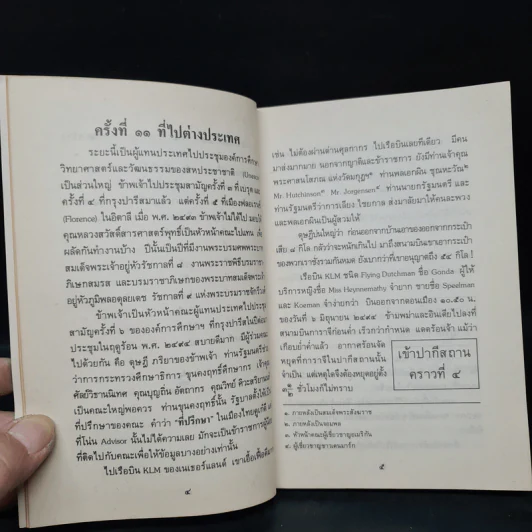 ครั้งที่ ๑๑ ที่ไปต่างประเทศ
ระยะนี้เป็นผู้แทนประเทศไปประชุมองค์การศึกษา
วิทยาศาสตร์และวัฒนธรรมของสหประชาชาติ
เป็นส่วนใหญ่ ข้าพเจ้าไปประชุมสามัญครั้งที่ ๓ ที่เบรุต และ
ครั้งที่ ๔ ที่กรุงปารีสมาแล้ว แต่ครั้งที่ ๕ ที่เมืองฟลอเรนซ์
(Florence) ในอิตาลี เมื่อ พ.ศ. ๒๔๙๓ ข้าพเจ้าไม่ได้ไป
คุณหลวงสวัสดิ์สารศาสตร์พุทธิ์เป็นหัวหน้าคณะไปแทน เพื่อ
ผลัดกันทำงานบ้าง ปีนั้นเป็นปีที่มีงานพระบรมศพพระบาท
สมเด็จพระเจ้าอยู่หัวรัชกาลที่ ๘ งานพระราชพิธีบรมราชา
ภิเษกสมรส และบรมราชาภิเษกของพระบาทสมเด็จพระเจ้า
อยู่หัวภูมิพลอดุลยเดช รัชกาลที่ ๙ แห่งพระบรมราชจักรีวงศ์
ข้าพเจ้าเป็นหัวหน้าคณะผู้แทนประเทศไปประชุม
สามัญครั้งที่ ๖ ขององค์การศึกษาฯ ที่กรุงปารีสในปีต่อมา
ประชุมในฤดูร้อน พ.ศ. ๒๔๙๔ สบายดีมาก มีผู้ร่วมคณะ
ไปด้วยกัน คือ ดุษฎี ภริยาของข้าพเจ้า ท่านรัฐมนตรี
ว่าการกระทรวงศึกษาธิการ ขุนคงฤทธิ์ศึกษากร เจ้า
ศัลย์วิธานนิเทศ คุณบุญถิ่น อัตถากร คุณวิทย์ ศิวะศริยานนท์
เป็นคณะใหญ่พอควร ท่านขุนคงฤทธิ์นั้น รัฐบาลตั้งให้เป็น
ที่ปรึกษาของคณะ คำว่า "ที่ปรึกษา" ในเมืองไทยดูเก๋ดี แต่
ที่โน่น Advisor นั้นไม่ได้ความเลย มักจะเป็นข้าราชการผู้น้อย
ที่ติดไปกับคณะเพื่อให้ข้อมูลบางอย่างเท่านั้น
ไปเรือบิน KLM ของเนเธอร์แลนด์ เขาเอื้อเฟื้อดีมาก
๔
เช่น ไม่ต้องผ่านด่านศุลกากร ไปเรือบินเลยทีเดียว มีคน
มาส่งมากมาย นอกจากญาติและข้าราชการ ยังมีท่านเจ้าคุณ
พระศาสนโสภณ แห่งวัดมกุฏฯ๑ ท่านพลเอกผิน ชุณหะวัณ๒
Mr. Hutchinson๓ Mr. Jorgensen๔ ท่านนายกรัฐมนตรี และ
ท่านรัฐมนตรีว่าการเลียง ไชยกาล ส่งมาลัยมาให้คนละพวง
และพลเอกผินเป็นผู้สวมให้
ดุษฎีบ่นใหญ่ว่า ก่อนออกจากบ้านเอาของออกจากกระเป๋า
เสีย ๘ กิโล กลัวว่าจะหนักเกินไป มาถึงสนามบินเขาเอากระเป๋า
ของพวกเราชั่งรวมกันหมด ยังเบากว่าที่เขาอนุญาตถึง ๕๔ กิโล !
เรือบิน KLM ชนิด Flying Dutchman ชื่อ Gonda ผู้ให้
บริการหญิงชื่อ Miss Heynnemathy จำยาก ชายชื่อ Speelman
และ Koeman จำง่ายกว่า บินออกจากดอนเมือง ๑๐.๕๐ น.
ของวันที่ ๖ มิถุนายน ๒๔๙๔ ข้ามพม่าและอินเดียไปลงที่
สนามบินการาจีก่อนค่ำ เร็วกว่ากำหนด แดดร้อนจ้า แม้ว่า
เกือบย่ำค่ำแล้ว อากาศร้อนจัด
หยุดที่การาจีในปากีสถานนั้น
จำเป็น แต่เหตุใดจึงต้องหยุดตั้ง
๓ ๑/๒ ชั่วโมงก็ไม่ทราบ
เข้าปากีสถาน
คราวที่ ๔
๑. ภายหลังเป็นสมเด็จพระสังฆราช
๒. ภายหลังเป็นจอมพล
๓. หัวหน้าคณะผู้เชี่ยวชาญอเมริกัน
๔. ผู้เชี่ยวชาญชาวเดนมาร์ก
๕